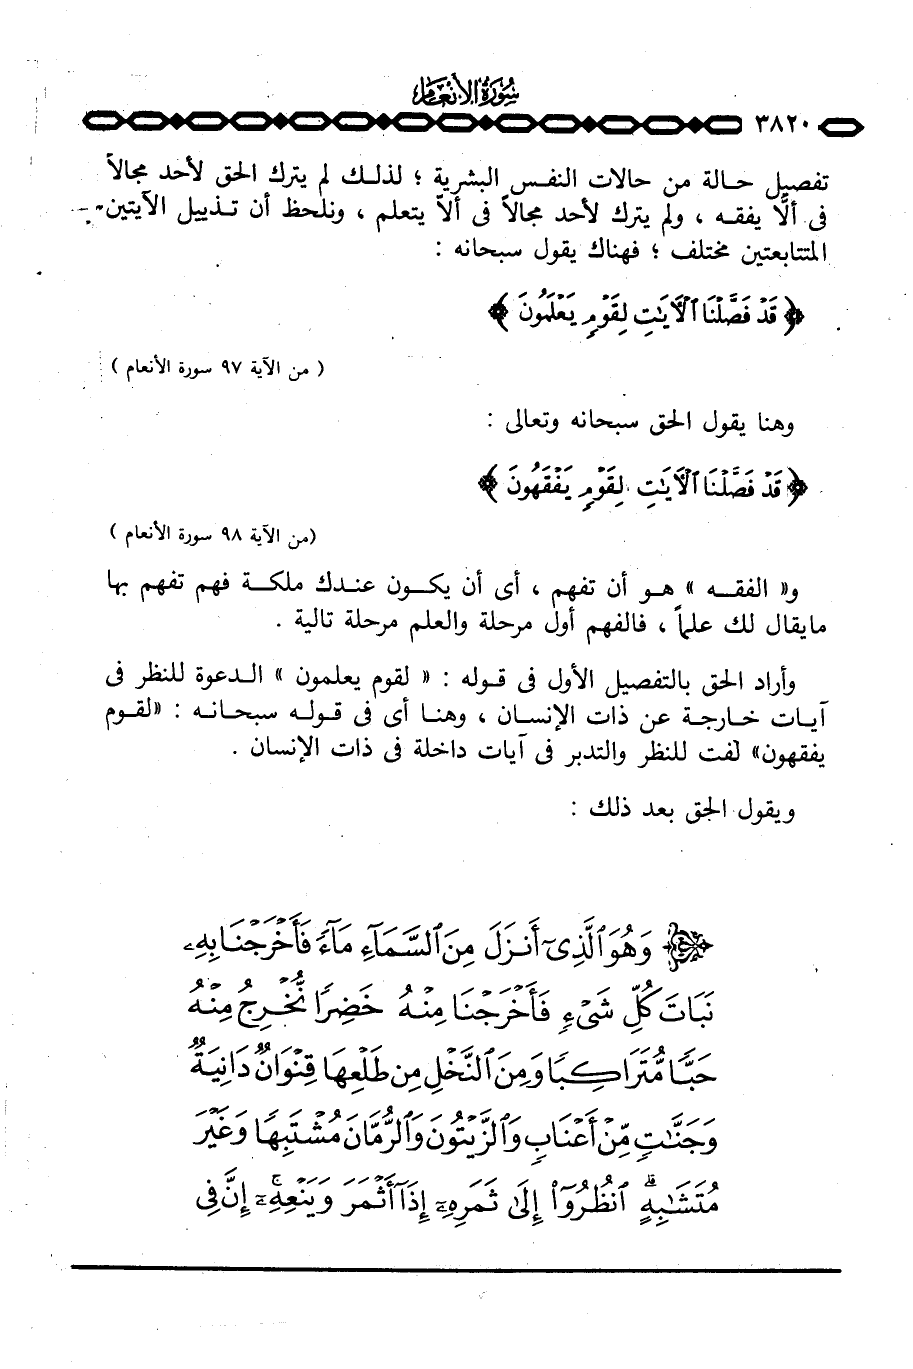 سورة الأنعام
٣٨٢٠
تفصيل حالة من حالات النفس البشرية ؛ لذلك لم يترك الحق لأحد مجالاً
فى ألَّا يفقه ، ولم يترك لأحد مجالاً فى ألا يتعلم ، ونلحظ أن تذييل الآيتين
المتتابعتين مختلف ؛ فهناك يقول سبحانه :
﴿ قَدْ فَصَّلْنَا ٱلْآيَٰتِ لِقَوْمٍ يَعْلَمُونَ ﴾
( من الآية ٩٧ سورة الأنعام )
وهنا يقول الحق سبحانه وتعالى :
﴿ قَدْ فَصَّلْنَا ٱلْآيَٰتِ لِقَوْمٍ يَفْقَهُونَ ﴾
(من الآية ٩٨ سورة الأنعام )
و« الفقه » هو أن تفهم ، أى أن يكون عندك ملكة فهم تفهم بها
مايقال لك علماً ، فالفهم أول مرحلة والعلم مرحلة تالية .
وأراد الحق بالتفصيل الأول فى قوله : « لقوم يعلمون » الدعوة للنظر فى
آيات خارجة عن ذات الإنسان ، وهنا أى فى قوله سبحانه : «لقوم
يفقهون» لفت للنظر والتدبر فى آيات داخلة فى ذات الإنسان .
ويقول الحق بعد ذلك :
﴿ وَهُوَ ٱلَّذِىٓ أَنزَلَ مِنَ ٱلسَّمَآءِ مَآءً فَأَخْرَجْنَا بِهِۦ
نَبَاتَ كُلِّ شَىْءٍ فَأَخْرَجْنَا مِنْهُ خَضِرًا نُّخْرِجُ مِنْهُ
حَبًّا مُّتَرَاكِبًا وَمِنَ ٱلنَّخْلِ مِن طَلْعِهَا قِنْوَانٌ دَانِيَةٌ
وَجَنَّٰتٍ مِّنْ أَعْنَابٍ وَٱلزَّيْتُونَ وَٱلرُّمَّانَ مُشْتَبِهًا وَغَيْرَ
مُتَشَٰبِهٍ ۗ ٱنظُرُوٓا۟ إِلَىٰ ثَمَرِهِۦٓ إِذَآ أَثْمَرَ وَيَنْعِهِۦٓ ۚ إِنَّ فِى